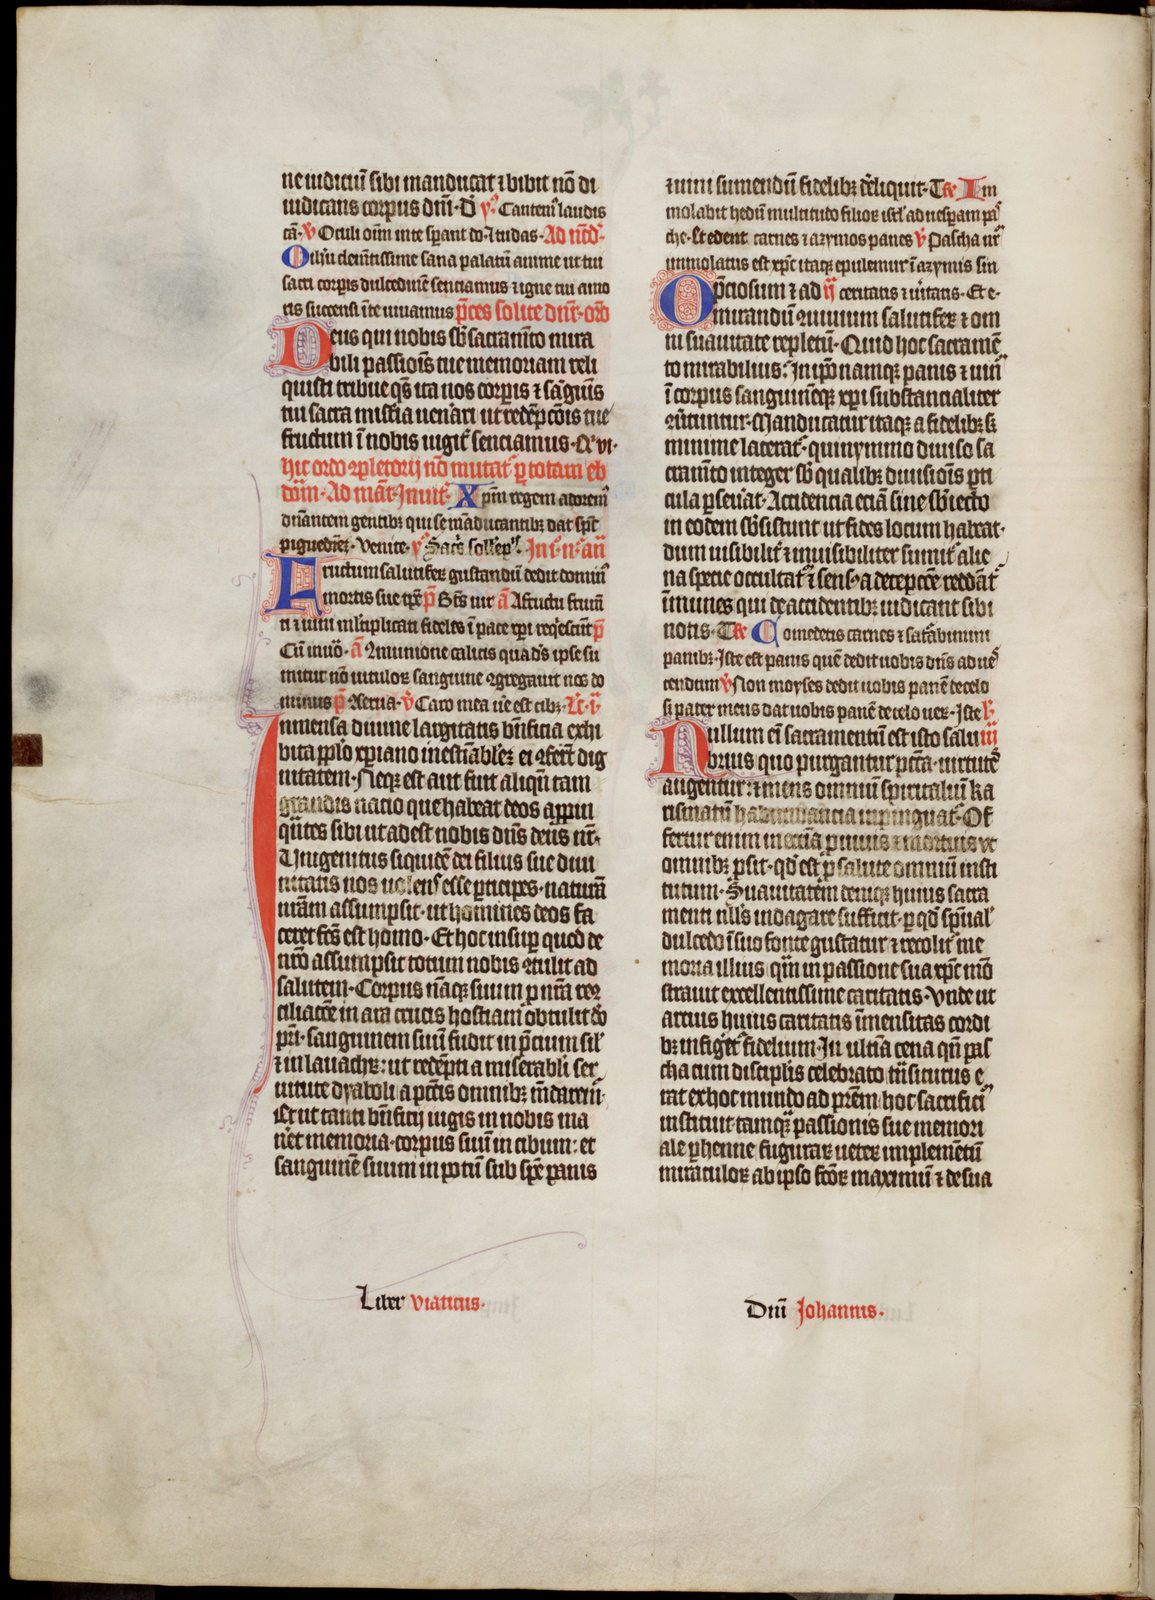 ne iudiciū sibi manducat ⁊ bibit nō di
iudicans corpus dn̄i. D̄ v̄ Cantem laudis
cā. v̄ Oculi oīm in te sperant do. Et u das. Ad nt̄d
O ih̄u dulcissime sana palatū anime ut tui
sacri corpis dulcedinē senciamus ⁊ igne tui amo
ris succensi ī te uiuamus p̄ces solite dn̄r. or̄o
Deus qui nobis sb̄ sacramto mira
bili passiōis tue memoriam reli
quisti tribue qs̄ ita nos corpis ⁊ sāguīs
tui sacra mist̄ia uen̄ari ut redēpcōis tue
fructum ī nobis iugit senciamus. Q vi
hic ordo ꝯpletorij nō mutat p totam eb
dom. Ad mat. Inuit. Xpm regem adorem
dn̄antem gentibꝫ qui se māducantibꝫ dat sp̄c
piguedinē. Venite. y Sacs sollep. In i. n. an
Fructum salutiferū gustandū dedit domin
mortis sue tp̄e p̄ Bt̄s uir a A fructu frum
ti ⁊ uini ml̄tiplicati fideles ī pace xp̄i req̄escūt p̄
Cū inuo. a ꝯmunione calicis qua ds̄ ipse su
mitur nō uitulorꝫ sanguine ꝯgregauit nos do
minus p̄ ꝯserua. v̄ Caro mea ue est cibꝫ. Lc̄. i
Inmensa diuine largitatis bn̄ficia exhi
bita pp̄lo xp̄iano inestiābilē ei ꝯfert dig
nitatem. Neqꝫ est aut fuit aliqn̄ tam
grandis nacio que habeat deos appin
quātes sibi ut adest nobis dn̄s deus nr̄.
Vnigenitus siquidē dei filius sue diui
nitatis nos uolens esse pticipes. naturā
nr̄am assumpsit. ut homines deos fa
ceret fcs̄ est homo. Et hoc insup quod de
nr̄o assumpsit totum nobis ꝯtulit ad
salutem. Corpus nāqꝫ suum p nr̄a recō
ciliacōe in ara crucis hostiam obtulit do
pr̄i. sanguinem suū fudit in p̄cium sil
⁊ in lauachꝝ: ut redēpti a miserabili ser
uitute dyaboli a pctīs omnibꝫ mūdarem.
Et ut tanti bn̄ficij iugis in nobis ma
neret memoria. corpus suū in cibum: et
sanguinē suum in potū sub spē panis
⁊ uini sumendū fidelibꝫ dēliquit. T ꝶ Im
molabit hedū multitudo filiorꝫ isrl ad uesperam pas
che. Et edent carnes ⁊ azymos panes v̄ Pascha nr̄
immolatus est xp̄c itaqꝫ epulemur ī azymis sin
O p̄ciosum ⁊ ad ij ceritatis ⁊ ūitatis. Et e.
mirandū ꝯuiuium salutiferꝫ ⁊ om
ni suauitate repletū. Quid hoc sacramē
to mirabilius? In ip̄o namqꝫ panis ⁊ uinū
ī corpus sanguinēqꝫ xp̄i substancialiter
ꝯūtuntur. Manducatur itaqꝫ a fidelibꝫ sꝫ
minime lacerat. quinymmo diuiso sa
cramto integer sb̄ qualibꝫ diuisiōis pti
cula pseuerat. Accidencia eciā sine sb̄iecto
in eodem sb̄sistunt ut fides locum habeat.
dum uisibilit ⁊ inuisibiliter sumit alie
na specie occultat ⁊ sensꝰ a decepcōe reddāt
īmunes qui de accidentibꝫ iudicant sibi
notis. T ꝶ Comedetis carnes ⁊ satābimini
panibꝫ. Iste est panis quē dedit uobis dn̄s ad ues
cendum v̄ Non moyses dedit uobis panē de celo
sꝫ pater meus dat uobis panē de celo uerꝫ. Iste l.
Nullum em̄ sacramentū est isto salu iij
brius quo purgantur pctā. uirtutes
augentur: ⁊ mens omniū spiritaliū ka
rismatū habundancia inpinguat. Of
fertur enim in ecc̄ia p uiuis ⁊ mortuis ut
omnibꝫ psit. qd̄ est p salute omniū insti
tutum. Suauitatem denique huius sacra
menti nll̄s indagare sufficit. p qd̄ sp̄ual
dulcedo ī suo fonte gustatur ⁊ recolit me
moria illius qm̄ in passione sua xp̄c mō
strauit excellentissime caritatis. Vnde ut
arcius huius caritatis īmensitas cordi
bꝫ infiget fidelium. In ultīa cena qn̄ pas
cha cum disciplīs celebrato trāsiturus e
rat ex hoc mundo ad prēm hoc sacrificī
instituit tamqꝫ passionis sue memori
ale phenne figurarꝫ ueterꝫ implemētū
miraculorꝫ ab ipso fctōrꝫ maximū ⁊ de sua
Liber viaticus.
Dn̄i Johannis.